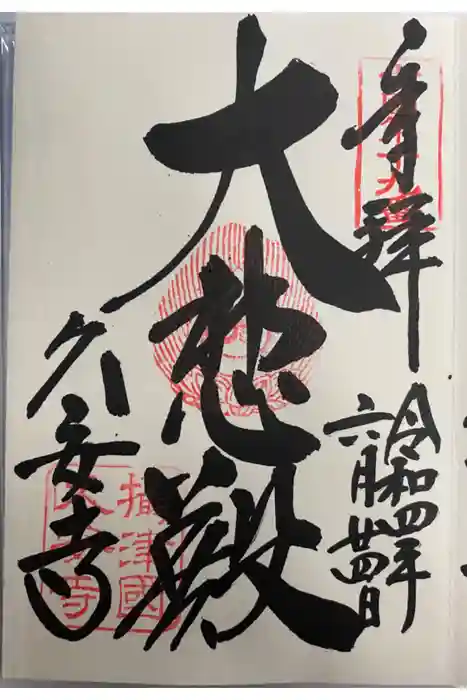 奉拝
令和四年
六月廿四日
大悲殿
久安寺
摂津國
久安寺